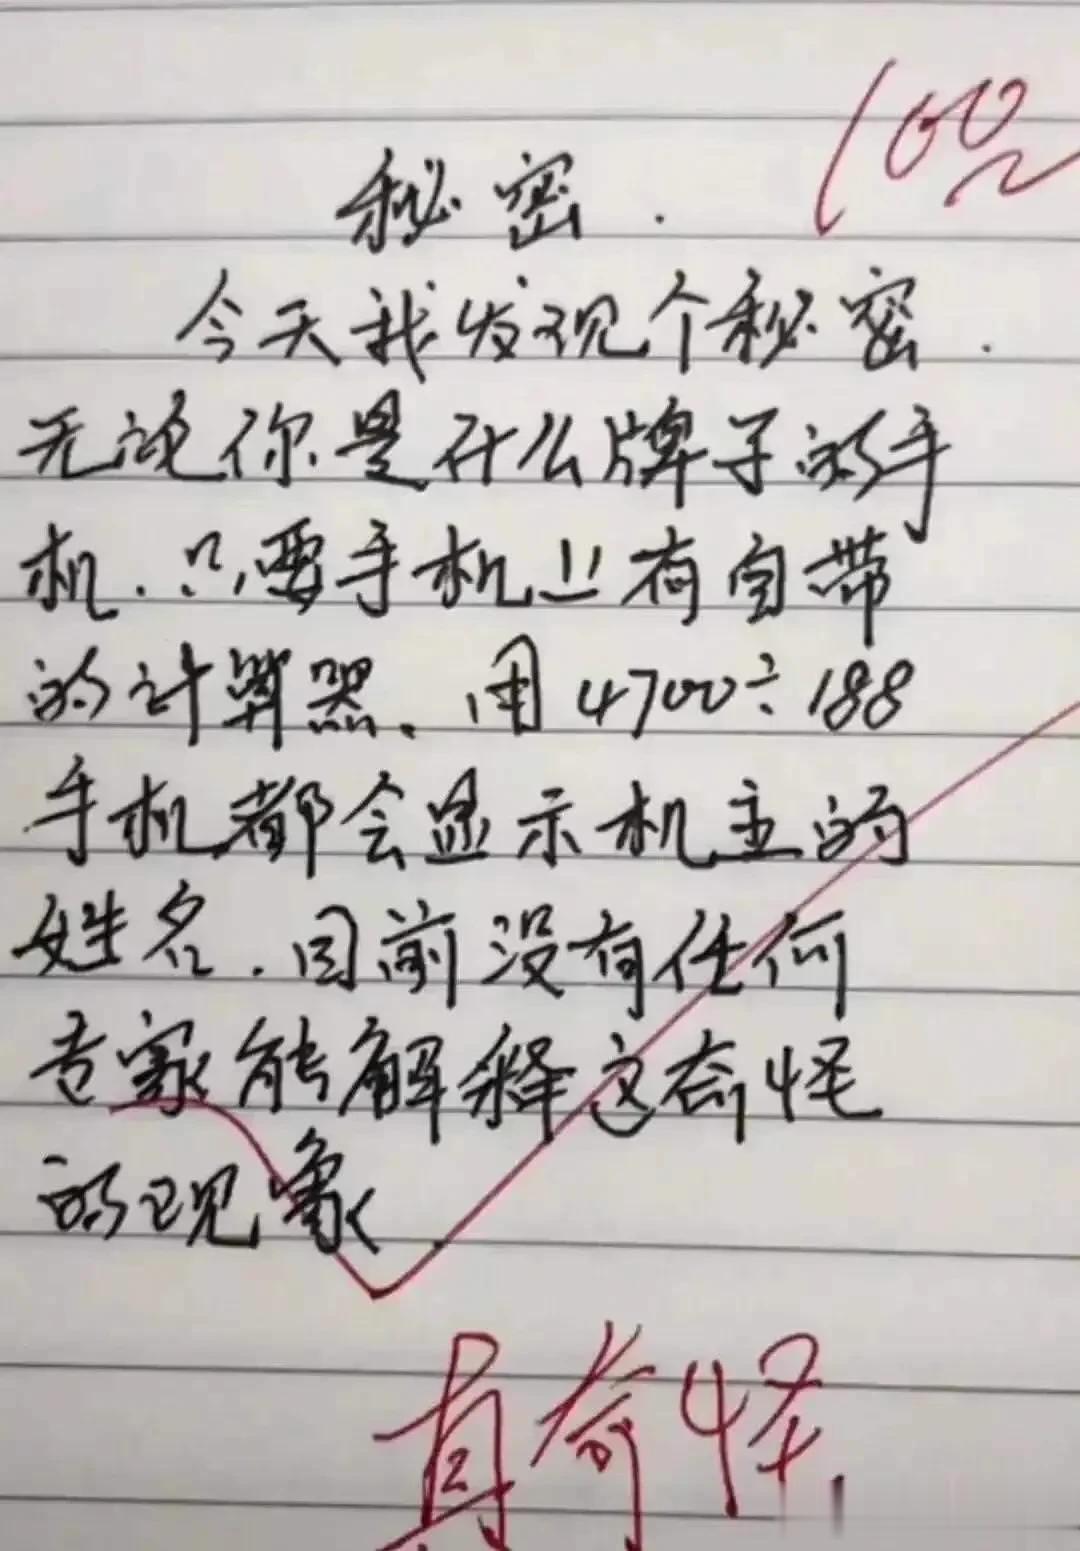 100
秘密.
今天我发现个秘密.
无论你是什么牌子的手
机.只要手机上有自带
的计算器、用4700÷188
手机都会显示机主的
姓名.目前没有任何
专家能解释这奇怪
的现象.
真奇怪